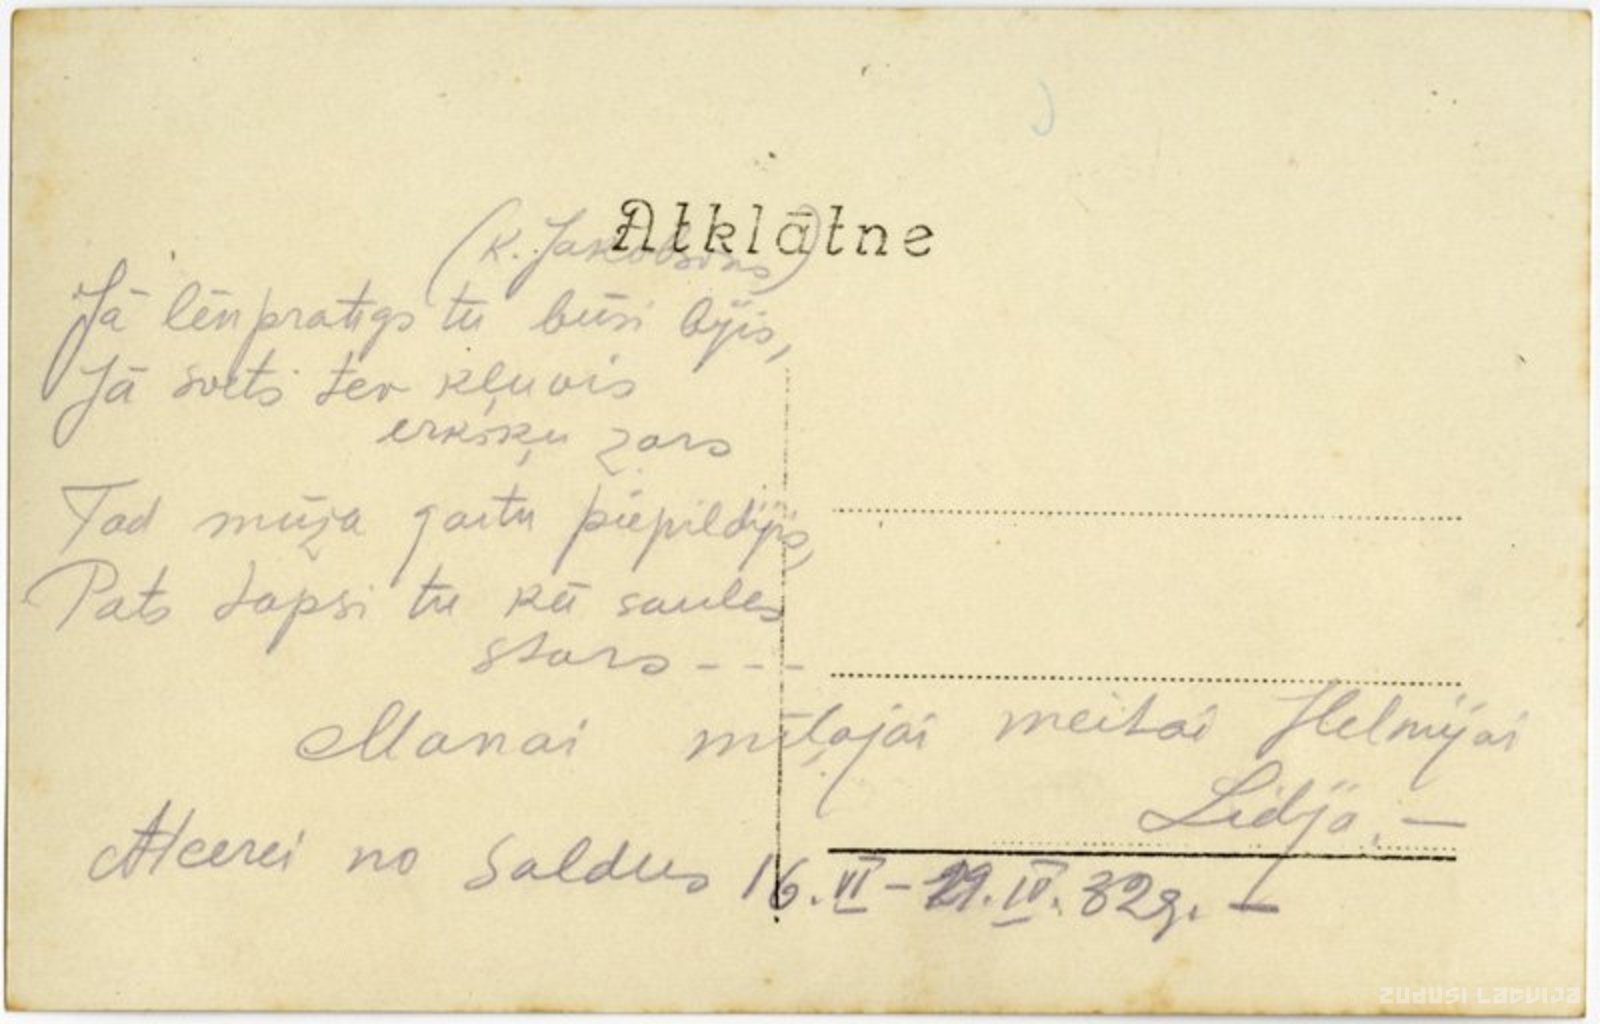 Atklātne
(K. Jakobsons)
Jā lēnpratigs tu būsi bijis,
Jā svēts tev kļuvis
erkšķu zars
Tad mūža gaitu piepildijis,
Pats tapsi tu kā saules
stars - - -
Manai mīļajai meitai Helmijai
Lidija. —
Atcerei no Saldus 16. VI - 29. IV. 32 g. —
ZUDUSI LATVIJA